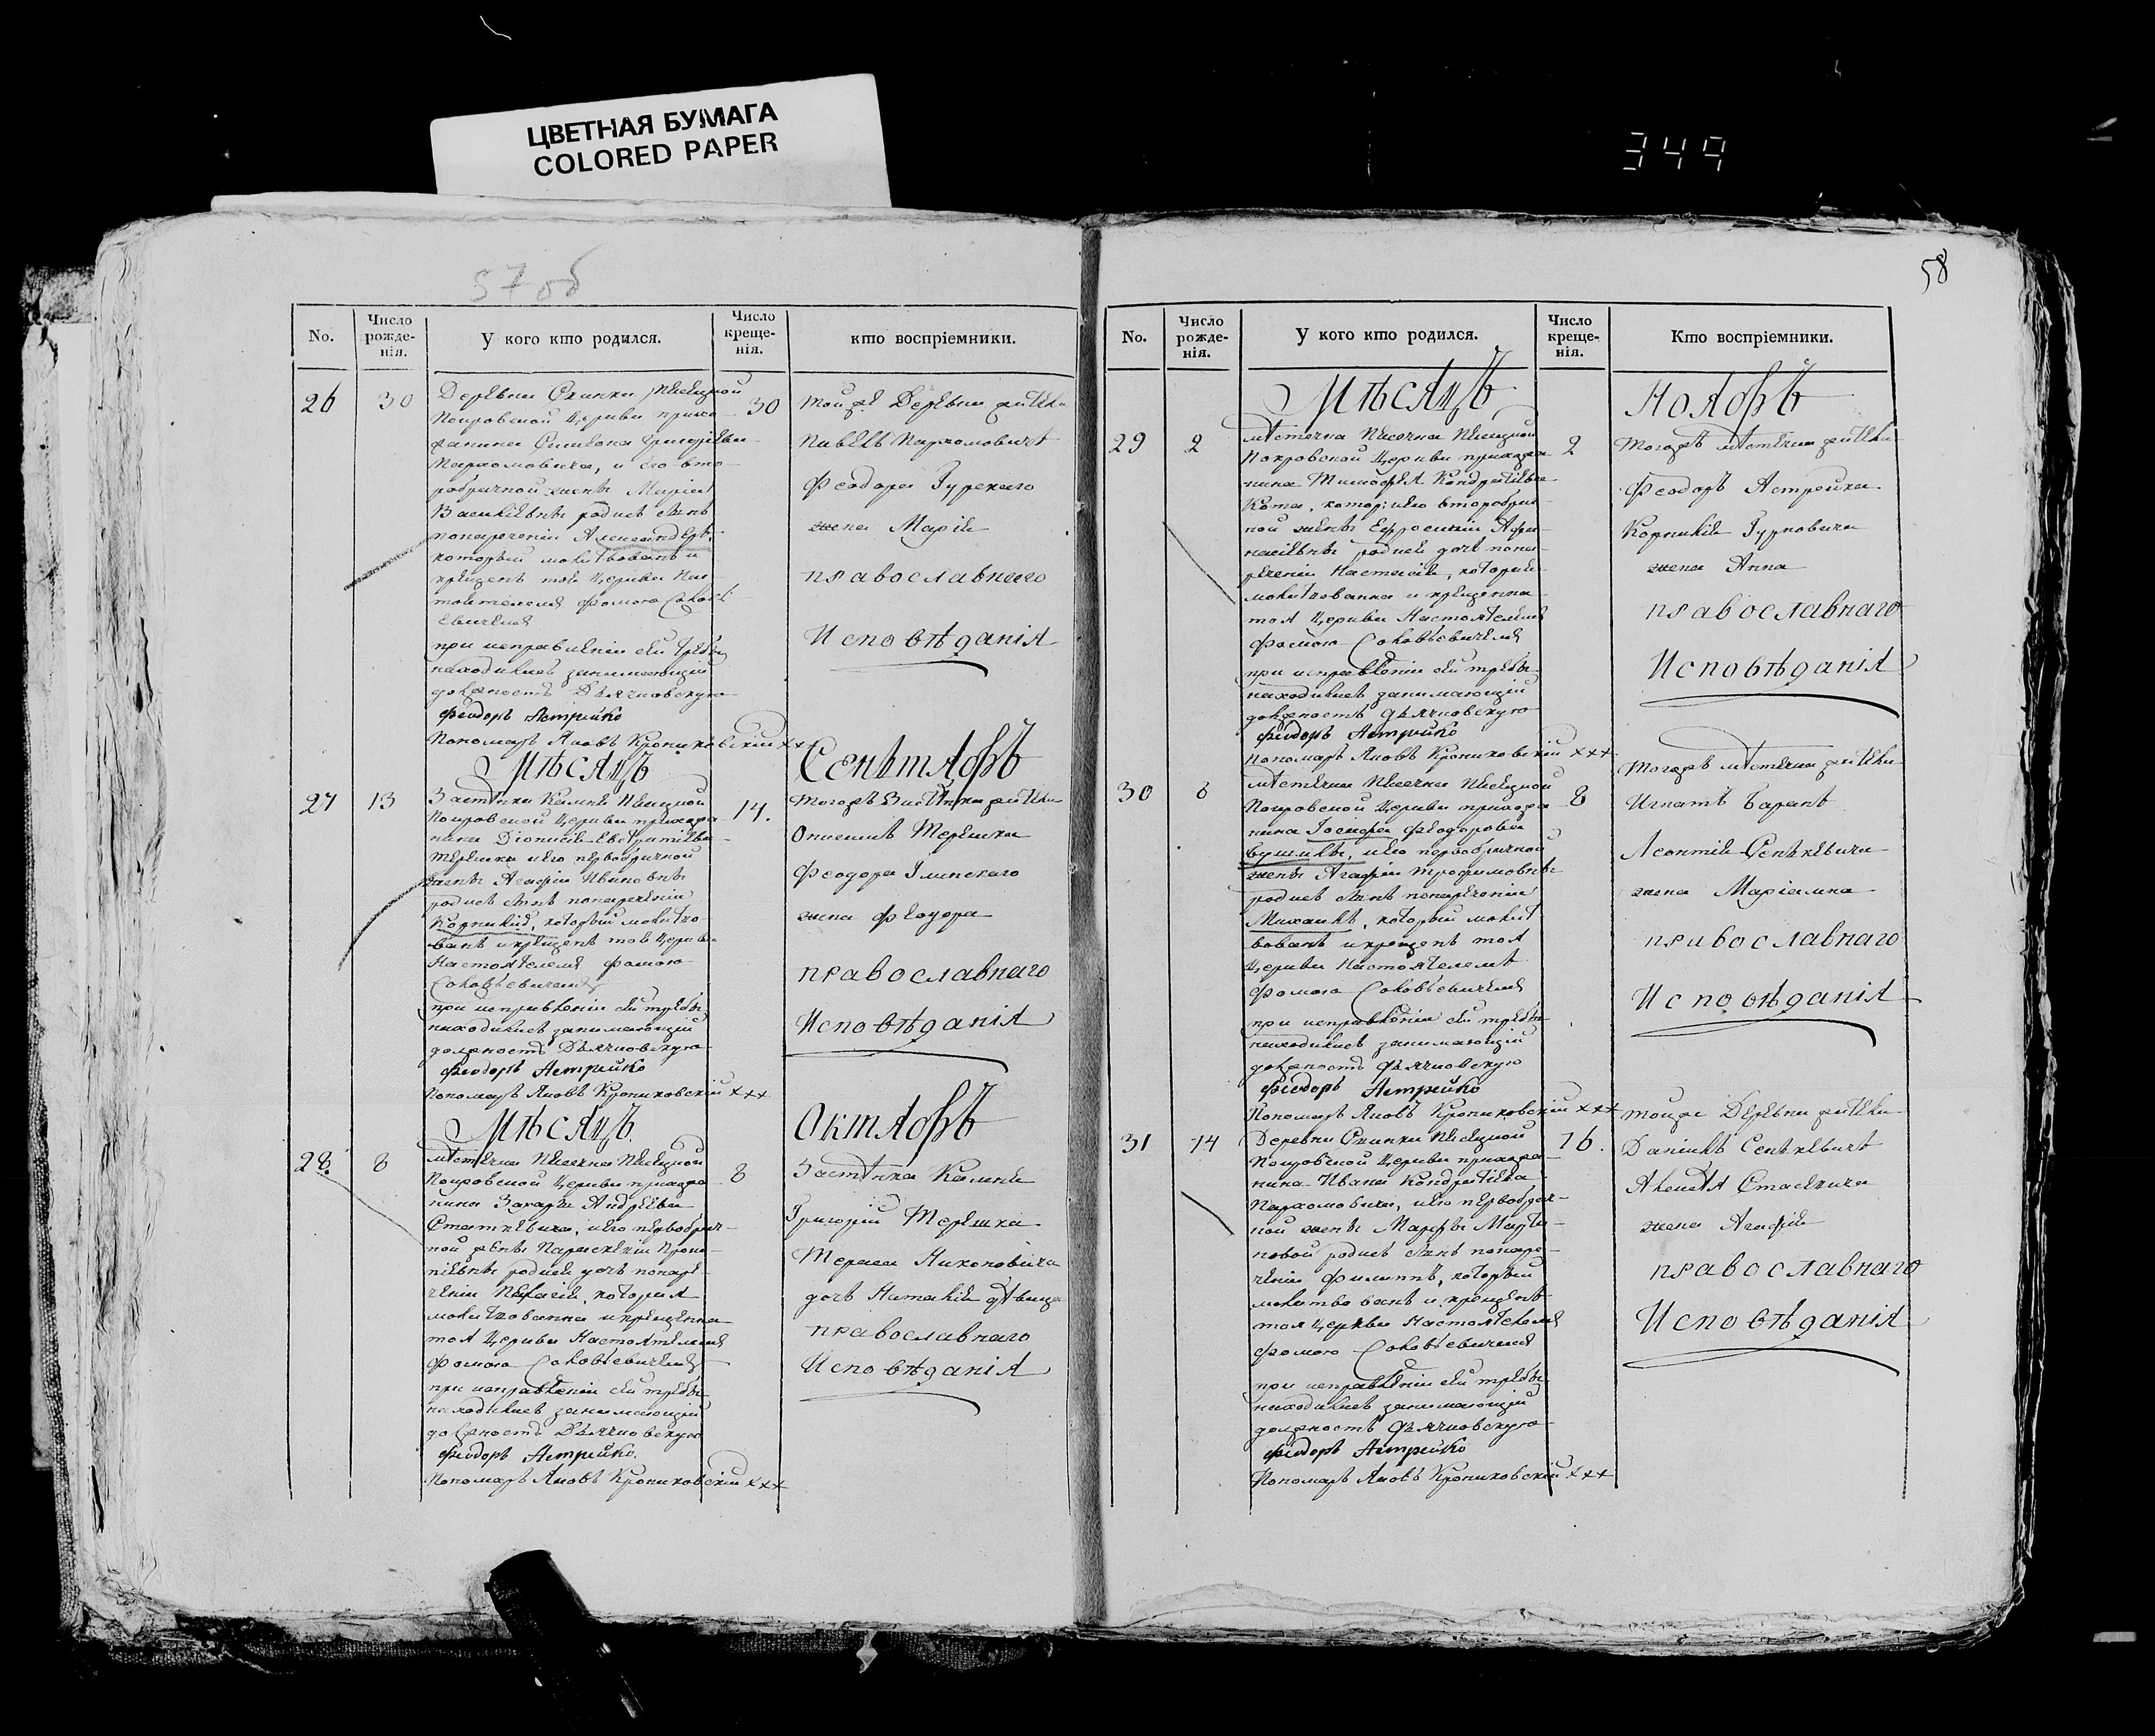 ЦВЕТНАЯ БУМАГА
COLORED PAPER
349
57 об
58
No.
Число рожде-нія.
У кого кто родился.
Число креще-нія.
кто воспріемники.
26
30
Деревни
Покровской Церкви прихо
Пархомовича, и его вто-
робрачной жены Маріи
Василіевны родись сынъ
понареченіи Александеръ
который молитвованъ и
крещенъ тоя Церкви Нас-
тоятелемъ Фомою
при исправленіи сей требы
находился занимающій
должность Дьячковскую
Феодоръ Астрейко
Пономарь Яковъ Крониковскій ххх
30
тойже Деревни житель
Павелъ Пархомовичъ
Феодора Гурскаго
жена Марія
православнаго
Исповѣданія
Мѣсяцъ
Сентябрь
27
13
Покровской Церкви прихожа
нина Діонисія
Терешки и его первобрачной
жены Агафіи Ивановны
родись сынъ понареченіи
Корнилій, который молитво-
ванъ и крещенъ тоя Церкви
Настоятелемъ Фомою
при исправленіи сей требы
находился занимающій
должность Дьячковскую
Феодоръ Астрейко
Пономарь Яковъ Крониковскій ххх
14.
тогожъ Застѣнка житель
Терешка
Феодора Глинскаго
жена Феодора
православнаго
Исповѣданія
Мѣсяцъ
Октябрь
28.
8
Покровской Церкви прихожа
нина Захарія Андреева
и его первобрач-
ной жены
родися дочь понаре-
ченіи Пелагія, которая
молитвованна и крещенна
тоя Церкви Настоятелемъ
Фомою
при исправленіи сей требы
находился занимающій
должность Дьячковскую
Феодоръ Астрейко.
Пономарь Яковъ Крониковскій ххх
8
Застѣнка
Григорій Терешка
дочь Наталія дѣвица
православнаго
Исповѣданія
No.
Число рожде-нія.
У кого кто родился.
Число креще-нія.
Кто воспріемники.
Мѣсяцъ
Ноябрь
29
2
Покровской Церкви прихожа
нина Тимофея Кондратіева
второбрач-
ной жены Ефросиніи Афа-
насіевны родися дочь пона-
реченіи Настасія, которая
молитвованна и крещенна
тоя Церкви Настоятелемъ
Фомою
при исправленіи сей требы
находился занимающій
должность Дьячковскую
Феодоръ Астрейко
Пономарь Яковъ Крониковскій ххх
2
тогожъ мѣстечка житель
Феодоръ Астрейка
Корнилія Гурновича
жена Анна
православнаго
Исповѣданія
30
8
Покровской Церкви прихожа
нина Іосифа Феодорова
и его первобрачной
жены Агафіи Трофимовны
родись сынъ понареченіи
Михаилъ, который молит
вованъ и крещенъ тоя
Церкви Настоятелемъ
Фомою
при исправленіи сей требы
находился занимающій
должность Дьячковскую
Феодоръ Астрейко
Пономарь Яковъ Крониковскій ххх
8
тогожъ мѣстечка житель
Игнатъ Баранъ
Леонтія Сенкевича
жена Маріамна
православнаго
Исповѣданія
31
14
Деревни
Покровской Церкви прихожа
нина Ивана Кондратіева
Пархомовича, и его первобрач-
ной жены Марфы Марти-
новой родись сынъ понаре-
ченіи Филиппъ, который
молитвованъ и крещенъ
тоя Церкви Настоятелемъ
Фомою
при исправленіи сей требы
находился занимающій
должность Дьячковскую
Феодоръ Астрейко
Пономарь Яковъ Крониковскій ххх
16.
тойже Деревни житель
Даніилъ Сенкевичъ
жена Агафія
православнаго
Исповѣданія